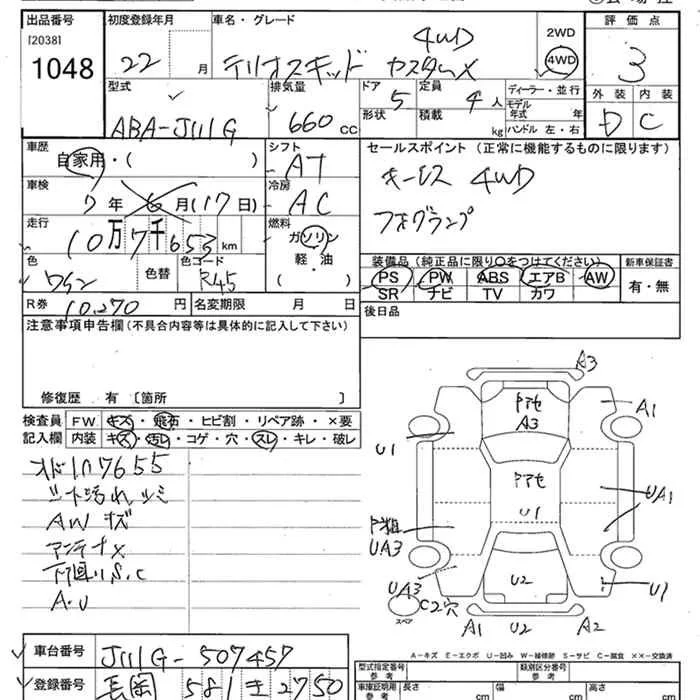 出品番号 初度登録年月 車名・グレード 2WD 4WD 評価点
[2038]
1048 22 月 テリオスキッド カスタムX 4WD 3
型式 排気量 ドア 形状 5 定員 積載 4人 kg ディーラー・並行 モデル年式 年 ハンドル 左・右 外装 内装
ABA-J111G 660cc D C
車歴 シフト セールスポイント (正常に機能するものに限ります)
自家用・( ) AT キーレス 4WD
車検 冷房
7年 6月(17日) AC フォグランプ
走行 燃料
10万7千653km ガソリン
軽・油
( )
色 色替 色コード 装備品 (純正品に限り○をつけてください) 新車保証書
ワイン R45 PS PW ABS エアB AW 有・無
SR ナビ TV カワ
R券 10,270円 名変期限 月 日
後日品
注意事項申告欄 (不具合内容等は具体的に記入して下さい)
修復歴 有 〔箇所 〕
検査員 FW キズ・飛石・ヒビ割・リペア跡・×要
記入欄 内装 キズ・汚レ・コゲ・穴・スレ・キレ・破レ
107655
シート汚れ シミ
AWキズ
アンテナX
下廻りS.C
A.U
A3
ドアセ
A3
A1
U1
ドアセ
U1
UA1
UA3
UA3
U2
U1
C2穴
スペア
A1 U2 A2
A-キズ E-エクボ U-凹み W-補修跡 S-サビ C-腐食 ××-交換済
車台番号 J111G-507457
登録番号 長岡 581 き 2750
型式指定番号 類別区分番号
参考 参考
車庫証明用 長さ 幅 高さ
参考 cm cm cm